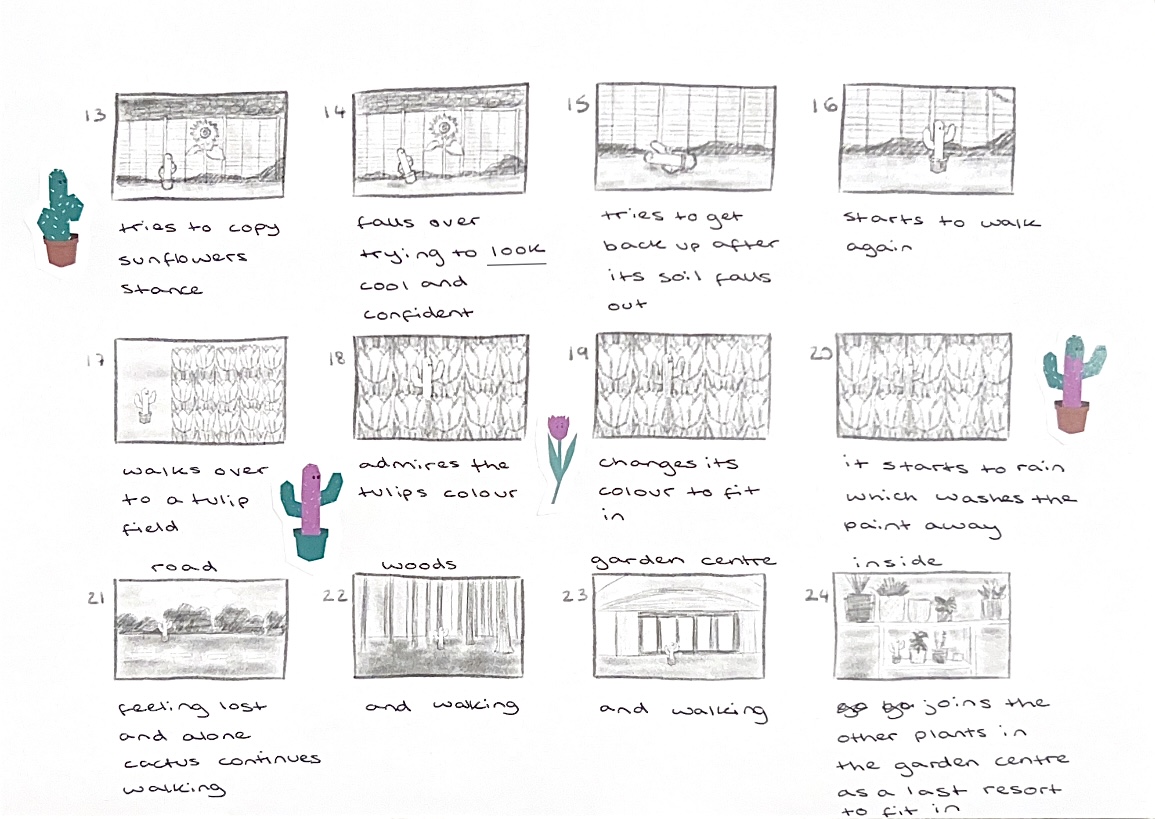 13
tries to copy
sunflowers
stance
14
falls over
trying to look
cool and
confident
15
tries to get
back up after
its soil falls
out
16
starts to walk
again
17
walks over
to a tulip
field
18
admires the
tulips colour
19
changes its
colour to fit
in
20
it starts to rain
which washes the
paint away
road
21
feeling lost
and alone
cactus continues
walking
woods
22
and walking
garden centre
23
and walking
inside
24
joins the
other plants in
the garden centre
as a last resort
to fit in